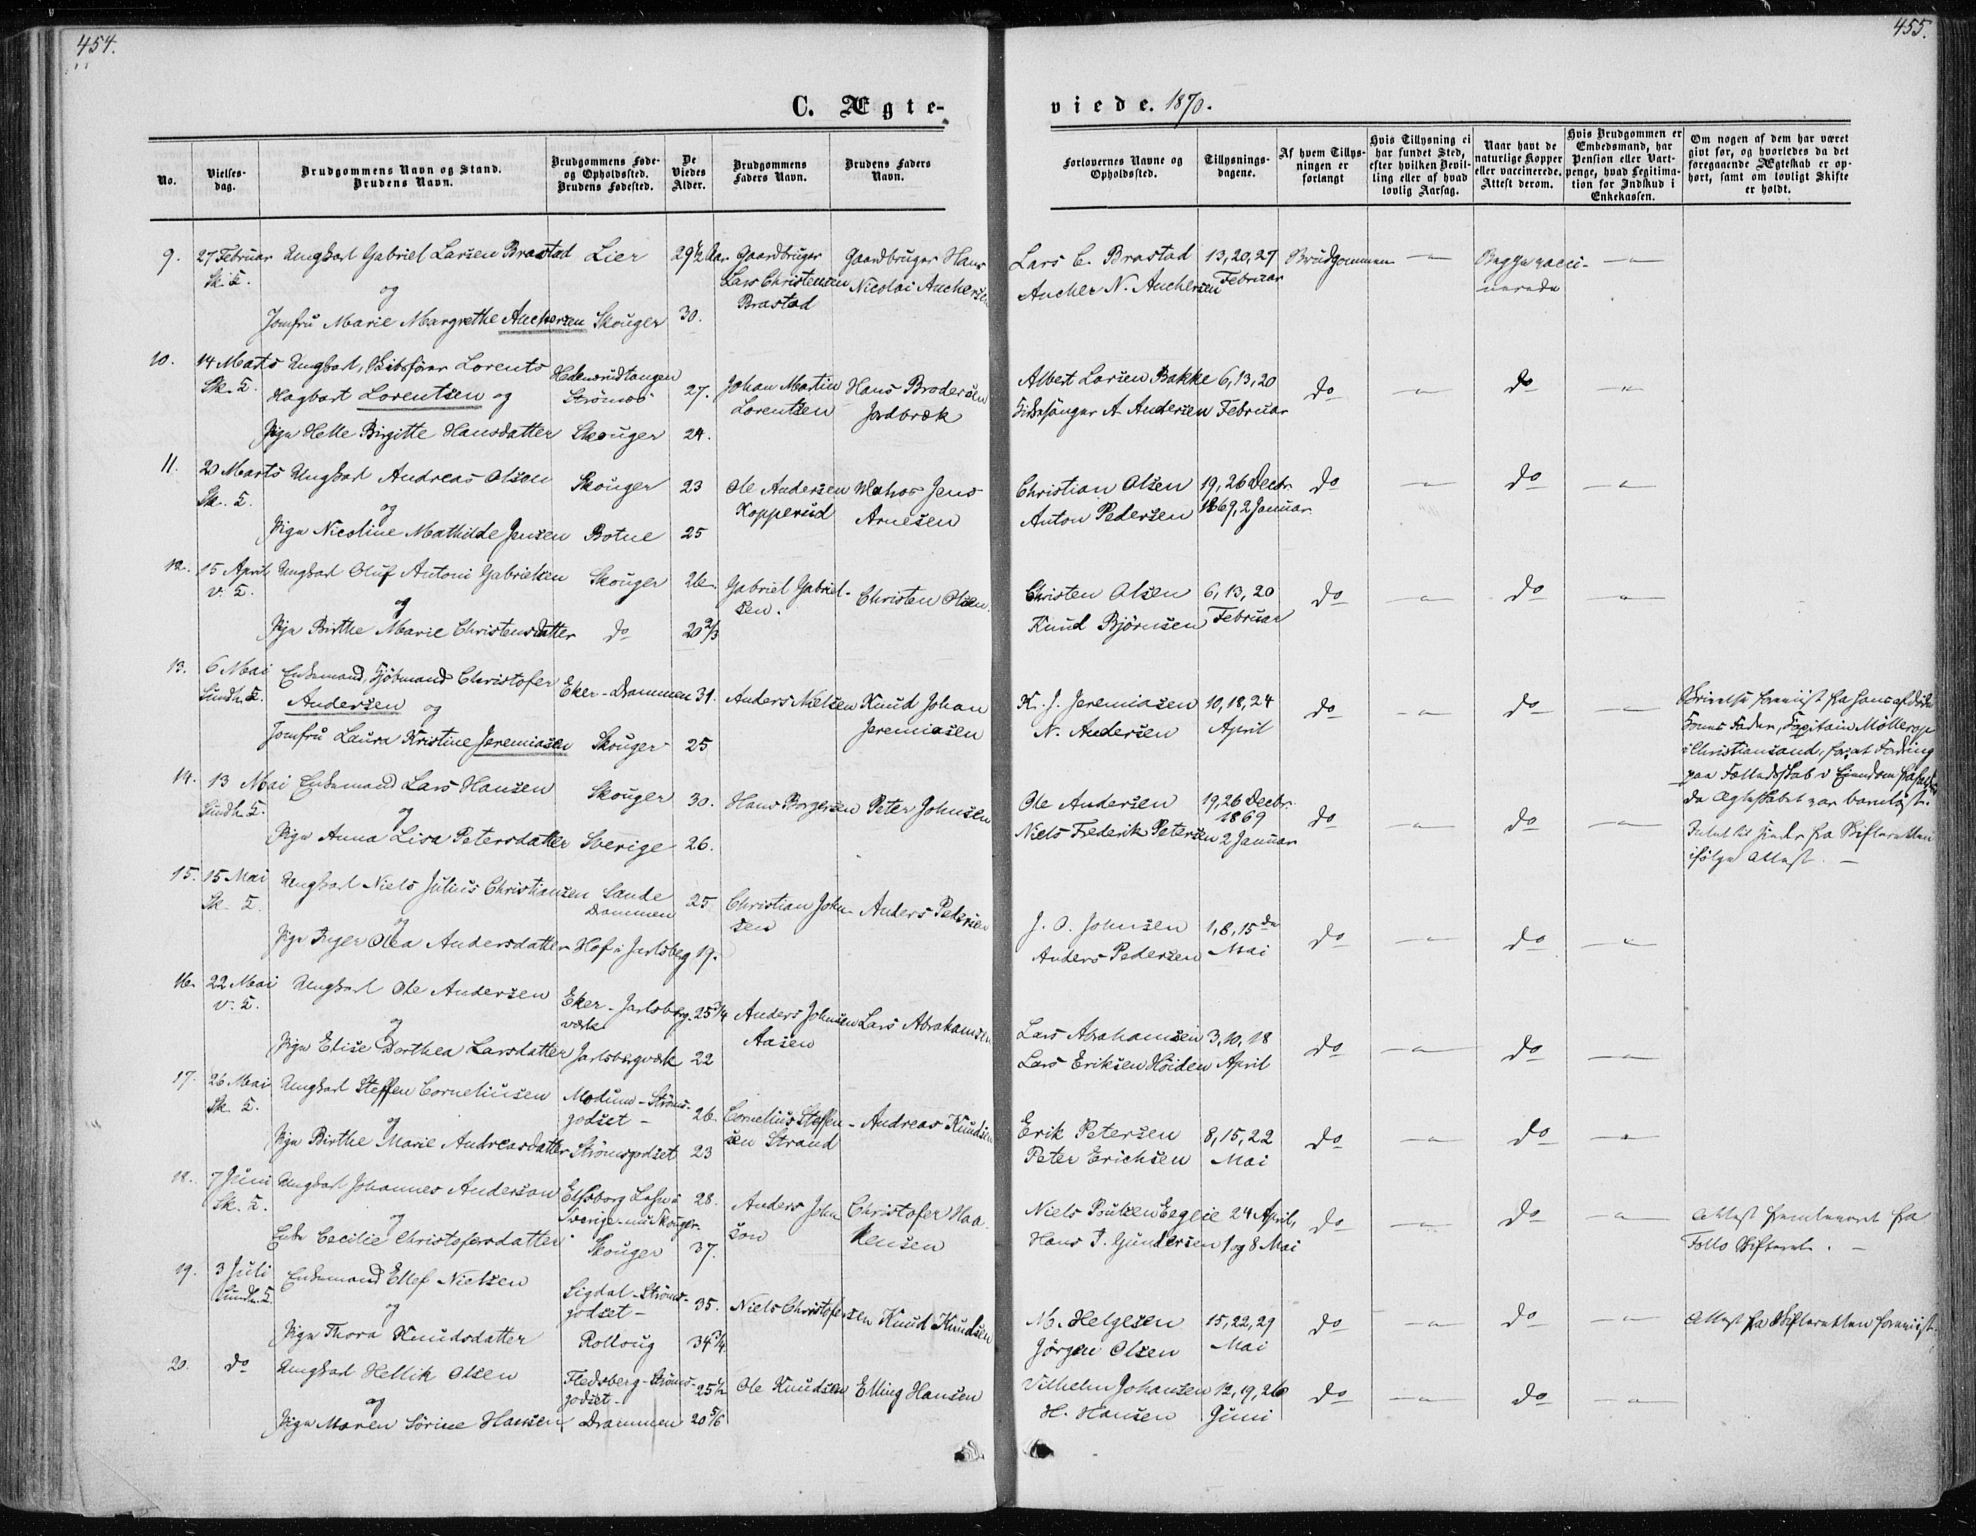 454.
455.
C. Ægte-
viede. 1870.
No.
Vielses-
dag.
Brudgommens Navn og Stand.
Brudens Navn.
Brudgommens Føde-
og Opholdssted.
Brudens Fødested.
De
Viedes
Alder.
Brudgommens
Faders Navn.
Brudens Faders
Navn.
Forlovernes Navne og
Opholdssted.
Tillysnings-
dagene.
Af hvem Tillys-
ningen er
forlangt
Hvis Tillysning ei
har fundet Sted,
efter hvilken Bevil-
ling eller af hvad
lovlig Aarsag.
Naar havt de
naturlige Kopper
eller vaccinerede.
Attest derom.
Hvis Brudgommen er
Embedsmand, har
Pension eller Vart-
penge, hvad Legitima-
tion for Indskud i
Enkekassen.
Om nogen af dem har været
gift før, og hvorledes da det
foregaaende Ægteskab er op-
hørt, samt om lovligt Skifte
er holdt.
9. 27 Februar Ungkarl Gabriel Larsen Brastad Lier 29½ Aar Gaardbruger Gaardbruger Hans
Sk. K. og Lars Christensen Nicolai Anchersen
Jomfru Marie Margrethe Anchersen Skouger 30. Brastad
Lars C. Brastad 13, 20, 27 Brudgommen — Begge vacci- —
Ancher N. Anchersen Februar nerede
10. 14 Marts Ungkarl, Lorents Hedensrudtangen
Sk. K. Hagbart Lorentsen og Strømsø 27. Johan Martin Hans Brodersen
Pige Helle Birgitte Hansdatter Skouger 24. Lorentsen Jordbræk
Albert Larsen Bakke 6, 13, 20 do — do —
Kirkesanger A. Andersen Februar
11. 20 Marts Ungkarl Andreas Olsen Skouger 23 Ole Andersen Jens
Sk. K. og Kopperud Arnesen
Pige Nicoline Mathilde Jensen Botne 25
Christian Olsen 19, 26 Decbr do — do —
Anton Pedersen 1869, 2 Januar
12. 15 April Ungkarl Oluf Antoni Gabrielsen Skouger 26 Gabriel Gabriel- Christen Olsen
V. K. og sen.
Pige Birthe Marie Christensdatter do 20⅔
Christen Olsen 6, 13, 20 do — do —
Knud Bjørnsen Februar
13. 6 Mai Enkemand, Sjömand Christofer Eker - Drammen 31. Anders Nielsen Knud Johan
Sundh. K. Andersen og Jeremiasen
Jomfru Laura Kristine Jeremiasen Skouger 25
K. J. Jeremiasen 10, 18, 24 do — do —
N. Andersen April
Kones Fader, Kapitain Møllerop
i Christiansand, for at Fordring
paa Fælledsskab i Eiendom
da Ægteskabet var barnløst.
14. 13 Mai Enkemand Lars Hansen Skouger 30. Hans Borgersen Peter Johnsen
Sundh. K. og
Pige Anna Lisa Petersdatter Sverige 26.
Ole Andersen 19, 26 Decbr. do — do —
Niels Frederik Petersen 1869 2 Januar
fra Skifteretten
ifølge Attest. —
15. 15 Mai Ungkarl Niels Julius Christiansen Sande 25 Christian John- Anders Pedersen
Sk. K. og Drammen sen
Pige Inger Olea Andersdatter Hof i Jarlsberg 19.
J. O. Johnsen 1, 8, 15de do — do —
Anders Pedersen Mai
16. 22 Mai Ungkarl Ole Andersen Eker - Jarlsberg- 25¾ Anders Johnsen Lars Abrahamsen
V. K. og værk Aasen
Pige Elise Dorthea Larsdatter Jarlsbergværk 22
Lars Abrahamsen 3, 10, 18 do — do —
Lars Eriksen Höiden April
17. 26 Mai Ungkarl Steffen Corneliusen Modum - Ströms- 26. Cornelius Steffen- Andreas Knudsen
Sk. K. og godset — sen Strand
Pige Birthe Marie Andreasdatter Strömsgodset 23
Erik Petersen 8, 15, 22 do — do —
Peter Erichsen Mai
18. 7 Juni Ungkarl Johannes Anderson Elfsborg Lehn i 28. Anders John Christofer Haa-
Sk. K. og Sverige - nu Skouger son kensen
Enke Cecilie Christofersdatter Skouger 37.
Niels Poulsen Eeglie 24 April, do — do — Attest fremleveret fra
Hans T. Gundersen 1 og 8 Mai Follo Skifteret. —
19. 3 Juli Enkemand Ellef Nielsen Sigdal - Ströms- 35. Niels Christofersen Knud Knudsen
Sundh. K. og godset —
Pige Thora Knudsdatter Rolloug 34¾
M. Helgesen 15, 22, 29 do — do — Attest fra Skifteretten forevist.
Jörgen Olsen Mai
20. do Ungkarl Hellik Olsen Flesberg - Ströms- 25½ Ole Knudsen Elling Hansen
og godset -
Pige Maren Sörine Hansen Drammen 20⅚
Vilhelm Johansen 12, 19, 26 do — do —
H. Hansen Juni